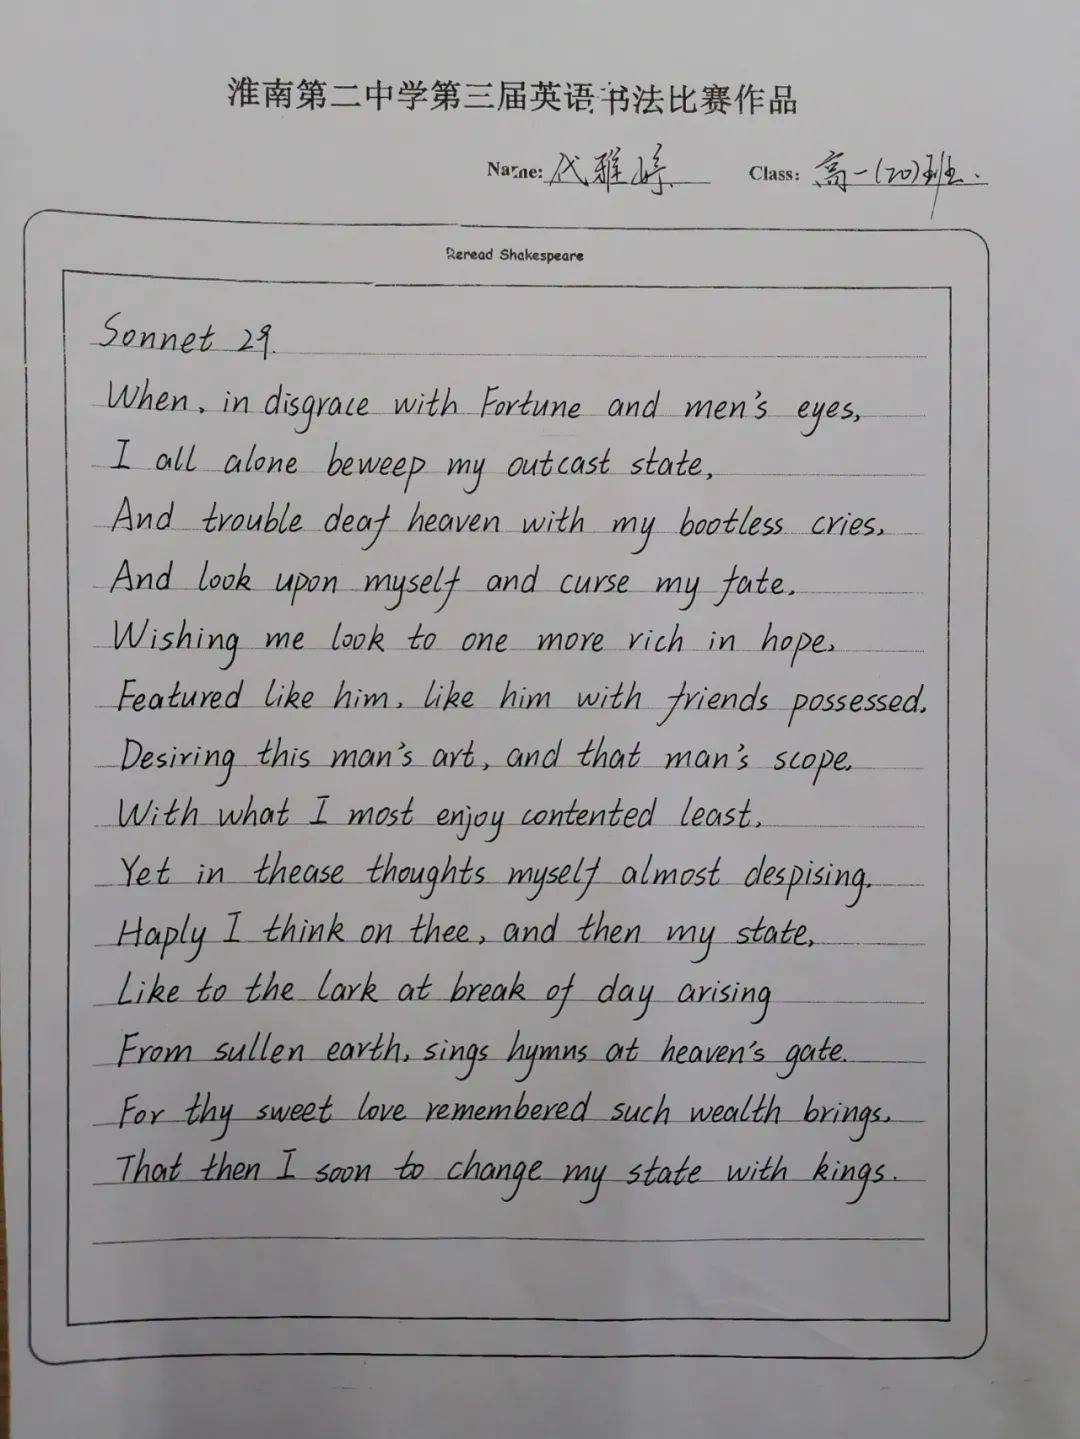 淮南第二中学第三届英语书法比赛作品
Name: 代雅婷 Class: 高一(20)班.
Reread Shakespeare
Sonnet 29.
When, in disgrace with Fortune and men's eyes,
I all alone beweep my outcast state,
And trouble deaf heaven with my bootless cries,
And look upon myself and curse my fate,
Wishing me look to one more rich in hope,
Featured like him, like him with friends possessed,
Desiring this man's art, and that man's scope,
With what I most enjoy contented least,
Yet in thease thoughts myself almost despising,
Haply I think on thee, and then my state,
Like to the lark at break of day arising
From sullen earth, sings hymns at heaven's gate.
For thy sweet love remembered such wealth brings,
That then I soon to change my state with kings.